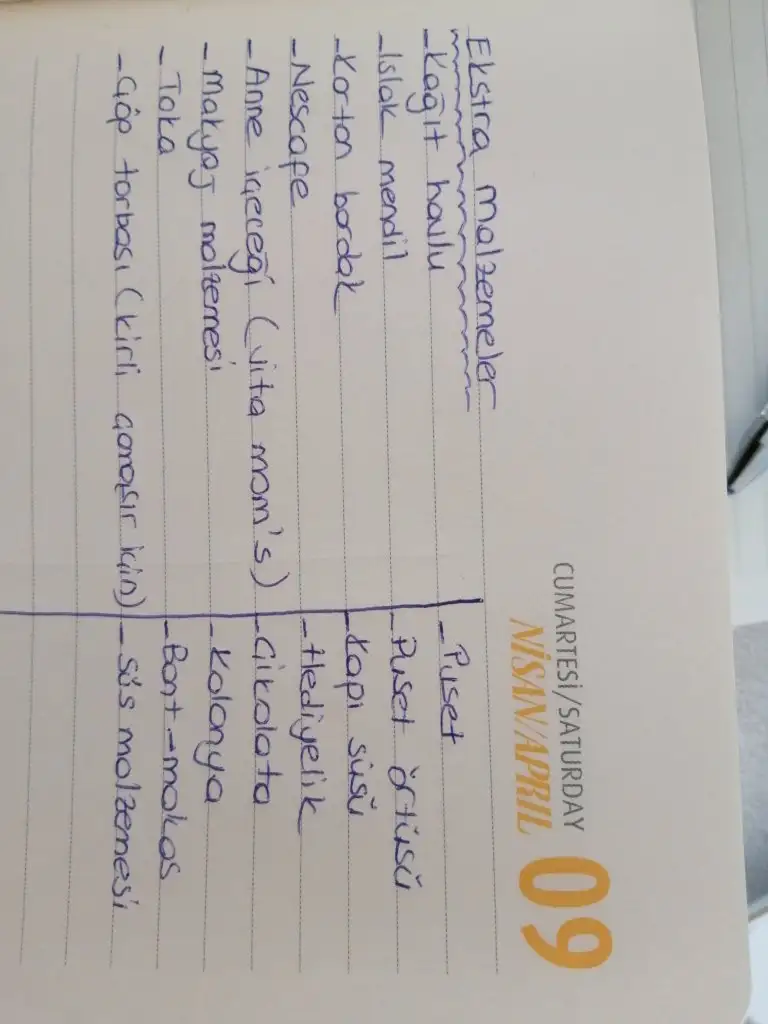 CUMARTESİ/SATURDAY
NİSAN/APRIL
09
Ekstra malzemeler
- Kağıt havlu
- Islak mendil
- Karton bardak
- Nescafe
- Anne içeceği (vita mom's)
- Makyaj malzemesi
- Toka
- Çöp torbası (kirli çamaşır için)
- Puset
- Puset örtüsü
- Kapı süsü
- Hediyelik
- Çikolata
- Kolonya
- Bant - makas
- Süs malzemesi